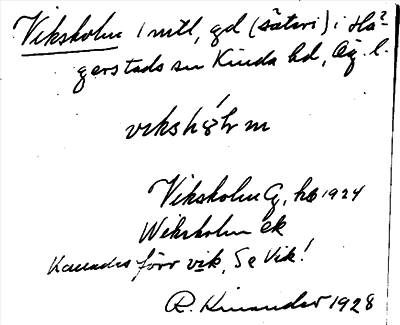 Viksholm 1 mtl, gd (säteri) i Hä-
gerstads sn Kinda hd, Ög. l.
vikshóḷm
Viksholm G, hb 1924
Wiksholm ek
Kallades förr vik, Se Vik!
R. Kinander 1928